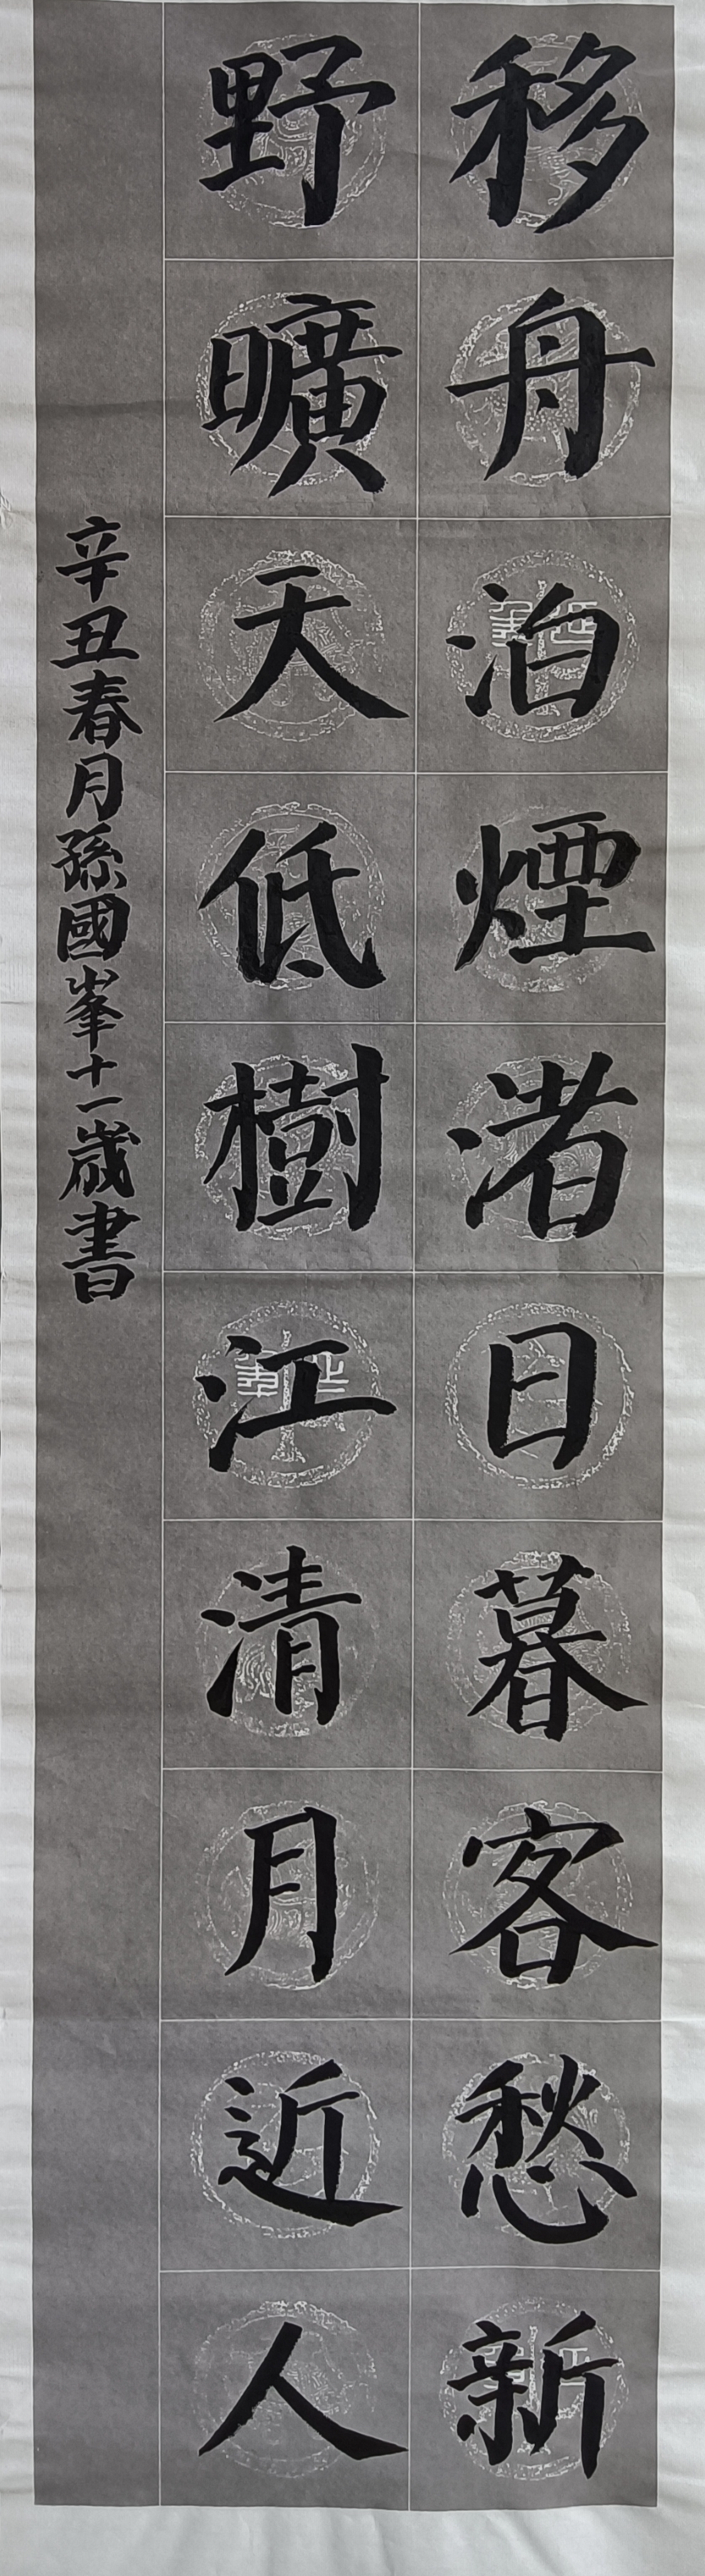 移舟泊煙渚日暮客愁新
野曠天低樹江清月近人
辛丑春月孫國峯十一歲書